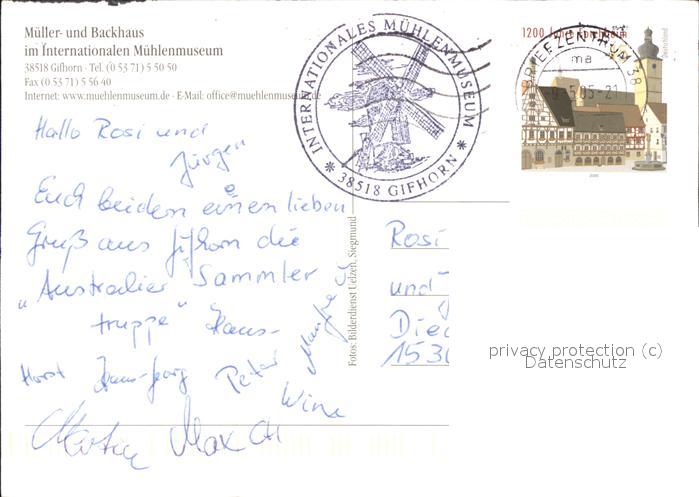 Müller- und Backhaus
im Internationalen Mühlenmuseum
38518 Gifhorn · Tel. (0 53 71) 5 50 50
Fax (0 53 71) 5 56 40
Internet: www.muehlenmuseum.de · E-Mail: office@muehlenmuseum.de
INTERNATIONALES MÜHLENMUSEUM
* 38518 GIFHORN *
1200 Jahre Forchheim
Deutschland
BRIEFZENTRUM 38
ma
5.05-21
2005
Hallo Rosi und
Jürgen
Euch beiden einen lieben
Gruß aus Gifhorn die
"Australier Sammler
truppe" Hans-
Horst Hans-Georg Peter Manfred
Wine
Martin
Fotos: Bilderdienst Uelzen, Siegmund
Rosi
und
Died
1530
privacy protection (c)
Datenschutz